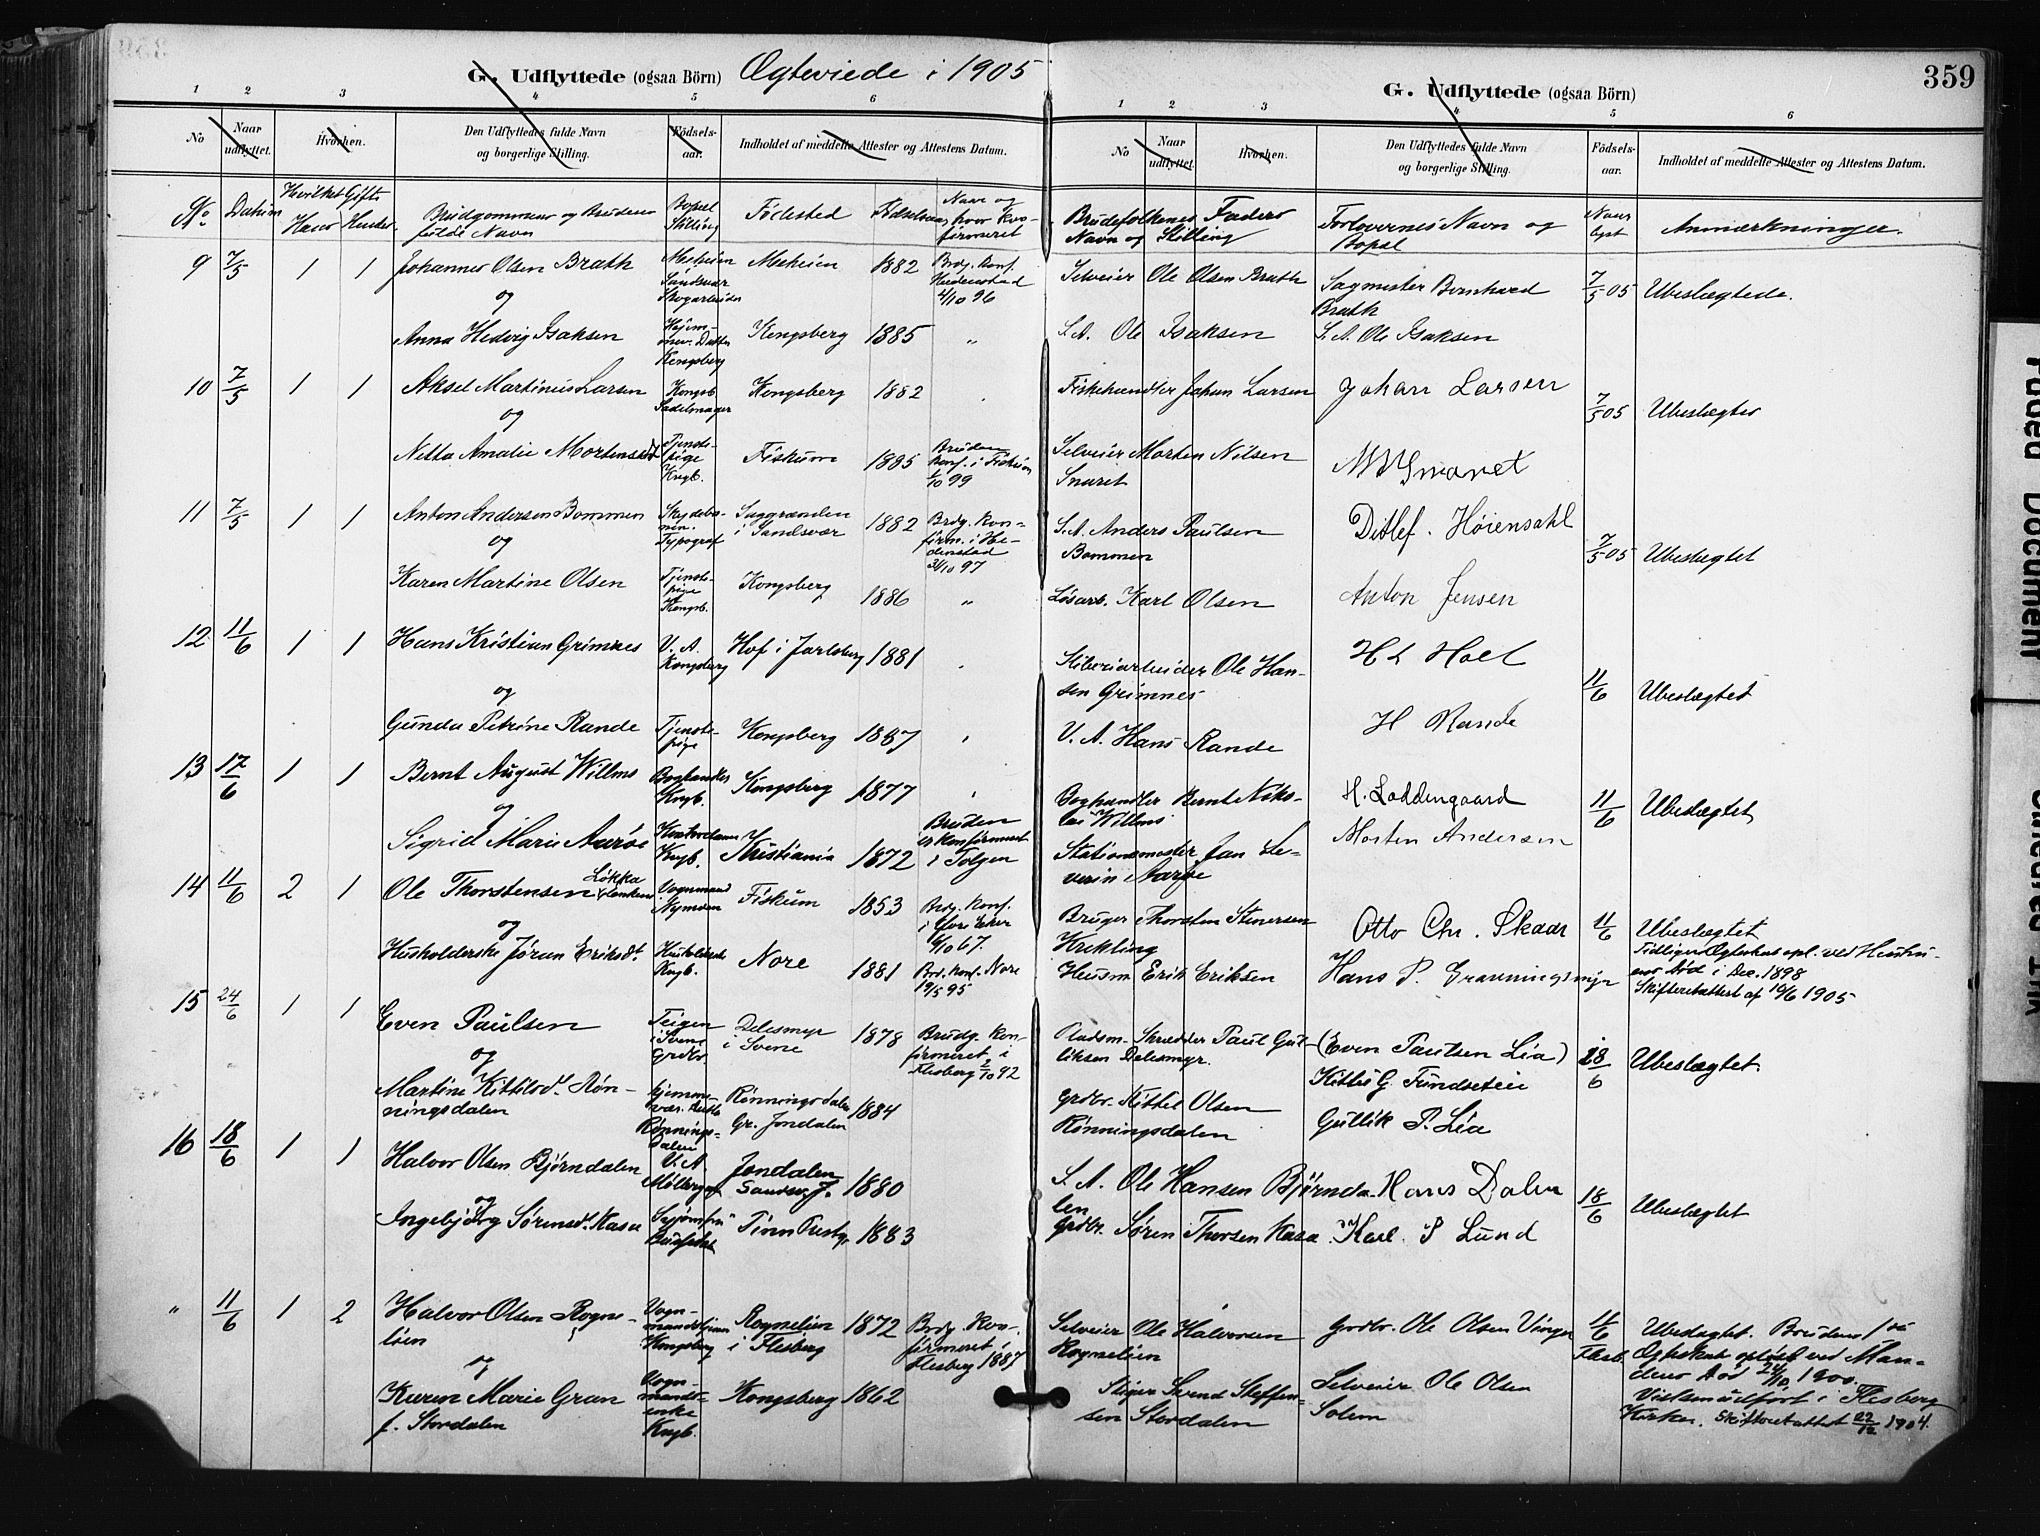 G. Udflyttede (ogsaa Börn) Ægteviede i 1905
1 2 3 4 5 6
No Naar udflyttet. Hvorhen. Den Udflyttedes fulde Navn og borgerlige Stilling. Födsels-aar. Indholdet af meddelte Attester og Attestens Datum.
No. Datum Hvilket Gifte Hans Hendes Brudgommens og Brudens fulde Navn Bopel Stilling Födested Födselsaar Naar og hvor kon-firmeret
9 7/5 1 1 Johannes Olsen Brath Meheien Sandsvær Skogarbeider Meheien 1882 Brdg. konf. Hedenstad 4/10 96
og
Anna Hedvig Isaksen Hjem-mev. Datter Kongsberg Kongsberg 1885 "
10 7/5 1 1 Aksel Martinius Larsen Kongsb. Sadelmager Kongsberg 1882
og
Netta Amalie Mortensdtr Tjeneste-pige Kngb. Fiskum 1885 Bruden konf. i Fiskum 1/10 99
11 7/5 1 1 Anton Andersen Bommen Typograf Saggrenden i Sandsvær 1882 Brdg. kon-firm. i He-denstad 31/10 97
og
Karen Martine Olsen Tjeneste-pige Kongsb. Kongsberg 1886 "
12 11/6 1 1 Hans Kristian Grimnes V. A. Kongsberg Hof i Jarlsberg 1881
og
Gunda Petrine Rande Tjeneste-pige Kongsberg 1887
13 17/6 1 1 Bernt August Willms Boghandler Kngb. Kongsberg 1877
og
Sigrid Marie Aarøe Kontordame Kngb. Kristiania 1872 Bruden er konfirmeret i Tolgen
14 11/6 2 1 Ole Thorstensen Løkka Vognmand Nymoen Fiskum 1853 Brdg. konf. i Øvre Eker 6/10 67.
og
Husholderske Jøran Eriksdt. Husholderske Kngb. Nore 1881 Brd. konf. Nore 19/5 95
15 24/6 1 1 Even Paulsen Teigen i Svene Grdbr. Delesmyr i Svene 1878 Brudg. kon-firmeret i Flesberg 2/10 92
og
Martine Kittilsd. Røn-ningsdalen Hjemme-vær. Datter Rønnings-dalen Rønningsdalen Gr. Jondalen 1884
16 18/6 1 1 Halvor Olsen Bjørndalen V. A. Jondalen Sandsv. 1880
og
Ingebjørg Sørensdt. Kasa Tinn Prestgj. 1883
" 11/6 1 2 Halvor Olsen Rogne-lien Vogn-mand Kongsberg Rognelien i Flesberg 1872 Brdg. kon-firmeret i Flesberg 1887
og
Karen Marie Gran f. Stordalen Vogn-mands-enke Kngb. Kongsberg 1862
359
G. Udflyttede (ogsaa Börn)
1 2 3 4 5 6
No Naar udflyttet. Hvorhen. Den Udflyttedes fulde Navn og borgerlige Stilling. Födsels-aar. Indholdet af meddelte Attester og Attestens Datum.
Brudefolkenes Faders Navn og Stilling Forlovernes Navn og Bopel Naar lyst Anmærkninger.
Selveier Ole Olsen Brath Sagmester Bernhard Brath 7/5 05 Ubeslægtede.
S. A. Ole Isaksen S. A. Ole Isaksen
Fiskehandler Johan Larsen Johan Larsen 7/5 05 Ubeslægtet
Selveier Morten Nilsen Snaret M N Snaret
S. A. Anders Paulsen Bommen Ditlef. Høiensahl 7/5 05 Ubeslægtet
Løsarb. Karl Olsen Anton Jensen
Sliberiarbeider Ole Han-sen Grimnes H L Holt 11/6 Ubeslægtet
V. A. Hans Rande H Rande
Boghandler Bernt Niko-lai Willms H. Loddengaard 11/6 Ubeslægtet
Stationsmester Jan Se-verin Aarøe Morten Andersen
Bruger Thorsten Stenersen Krekling Otto Chr. Skaar 11/6 Ubeslægtet
Tidligere Ægteskab opl. ved Hustru-ens Død i Dec. 1898
Husm. Erik Eriksen Hans P. Gravningsmyr Skifteretsattest af 10/6 1905
Pladsm. Skrædder Paul Gul-liksen Delesmyr. (Even Paulsen Lia) 18/6 Ubeslægtet.
Kittil G. Tundseteie
Grdbr. Kittel Olsen Rønningsdalen Gullik P. Lia
S. A. Ole Hansen Bjørnda-len Hans Dalen 18/6 Ubeslægtet
Grdbr. Søren Thorsen Kasa Karl. P Lund
Selveier Ole Halvorsen Rognelien Grdbr. Ole Olsen Vinger 11/6 Flesb. Ubeslægtet. Brudens 1ste
Ægteskab opløst ved Man-dens Død 24/10 1900.
Stiger Svend Steffen-sen Stordalen Selveier Ole Olsen Solem Vielsen udført i Flesberg
Kirke. Skifteretsattest 22/12 1904.